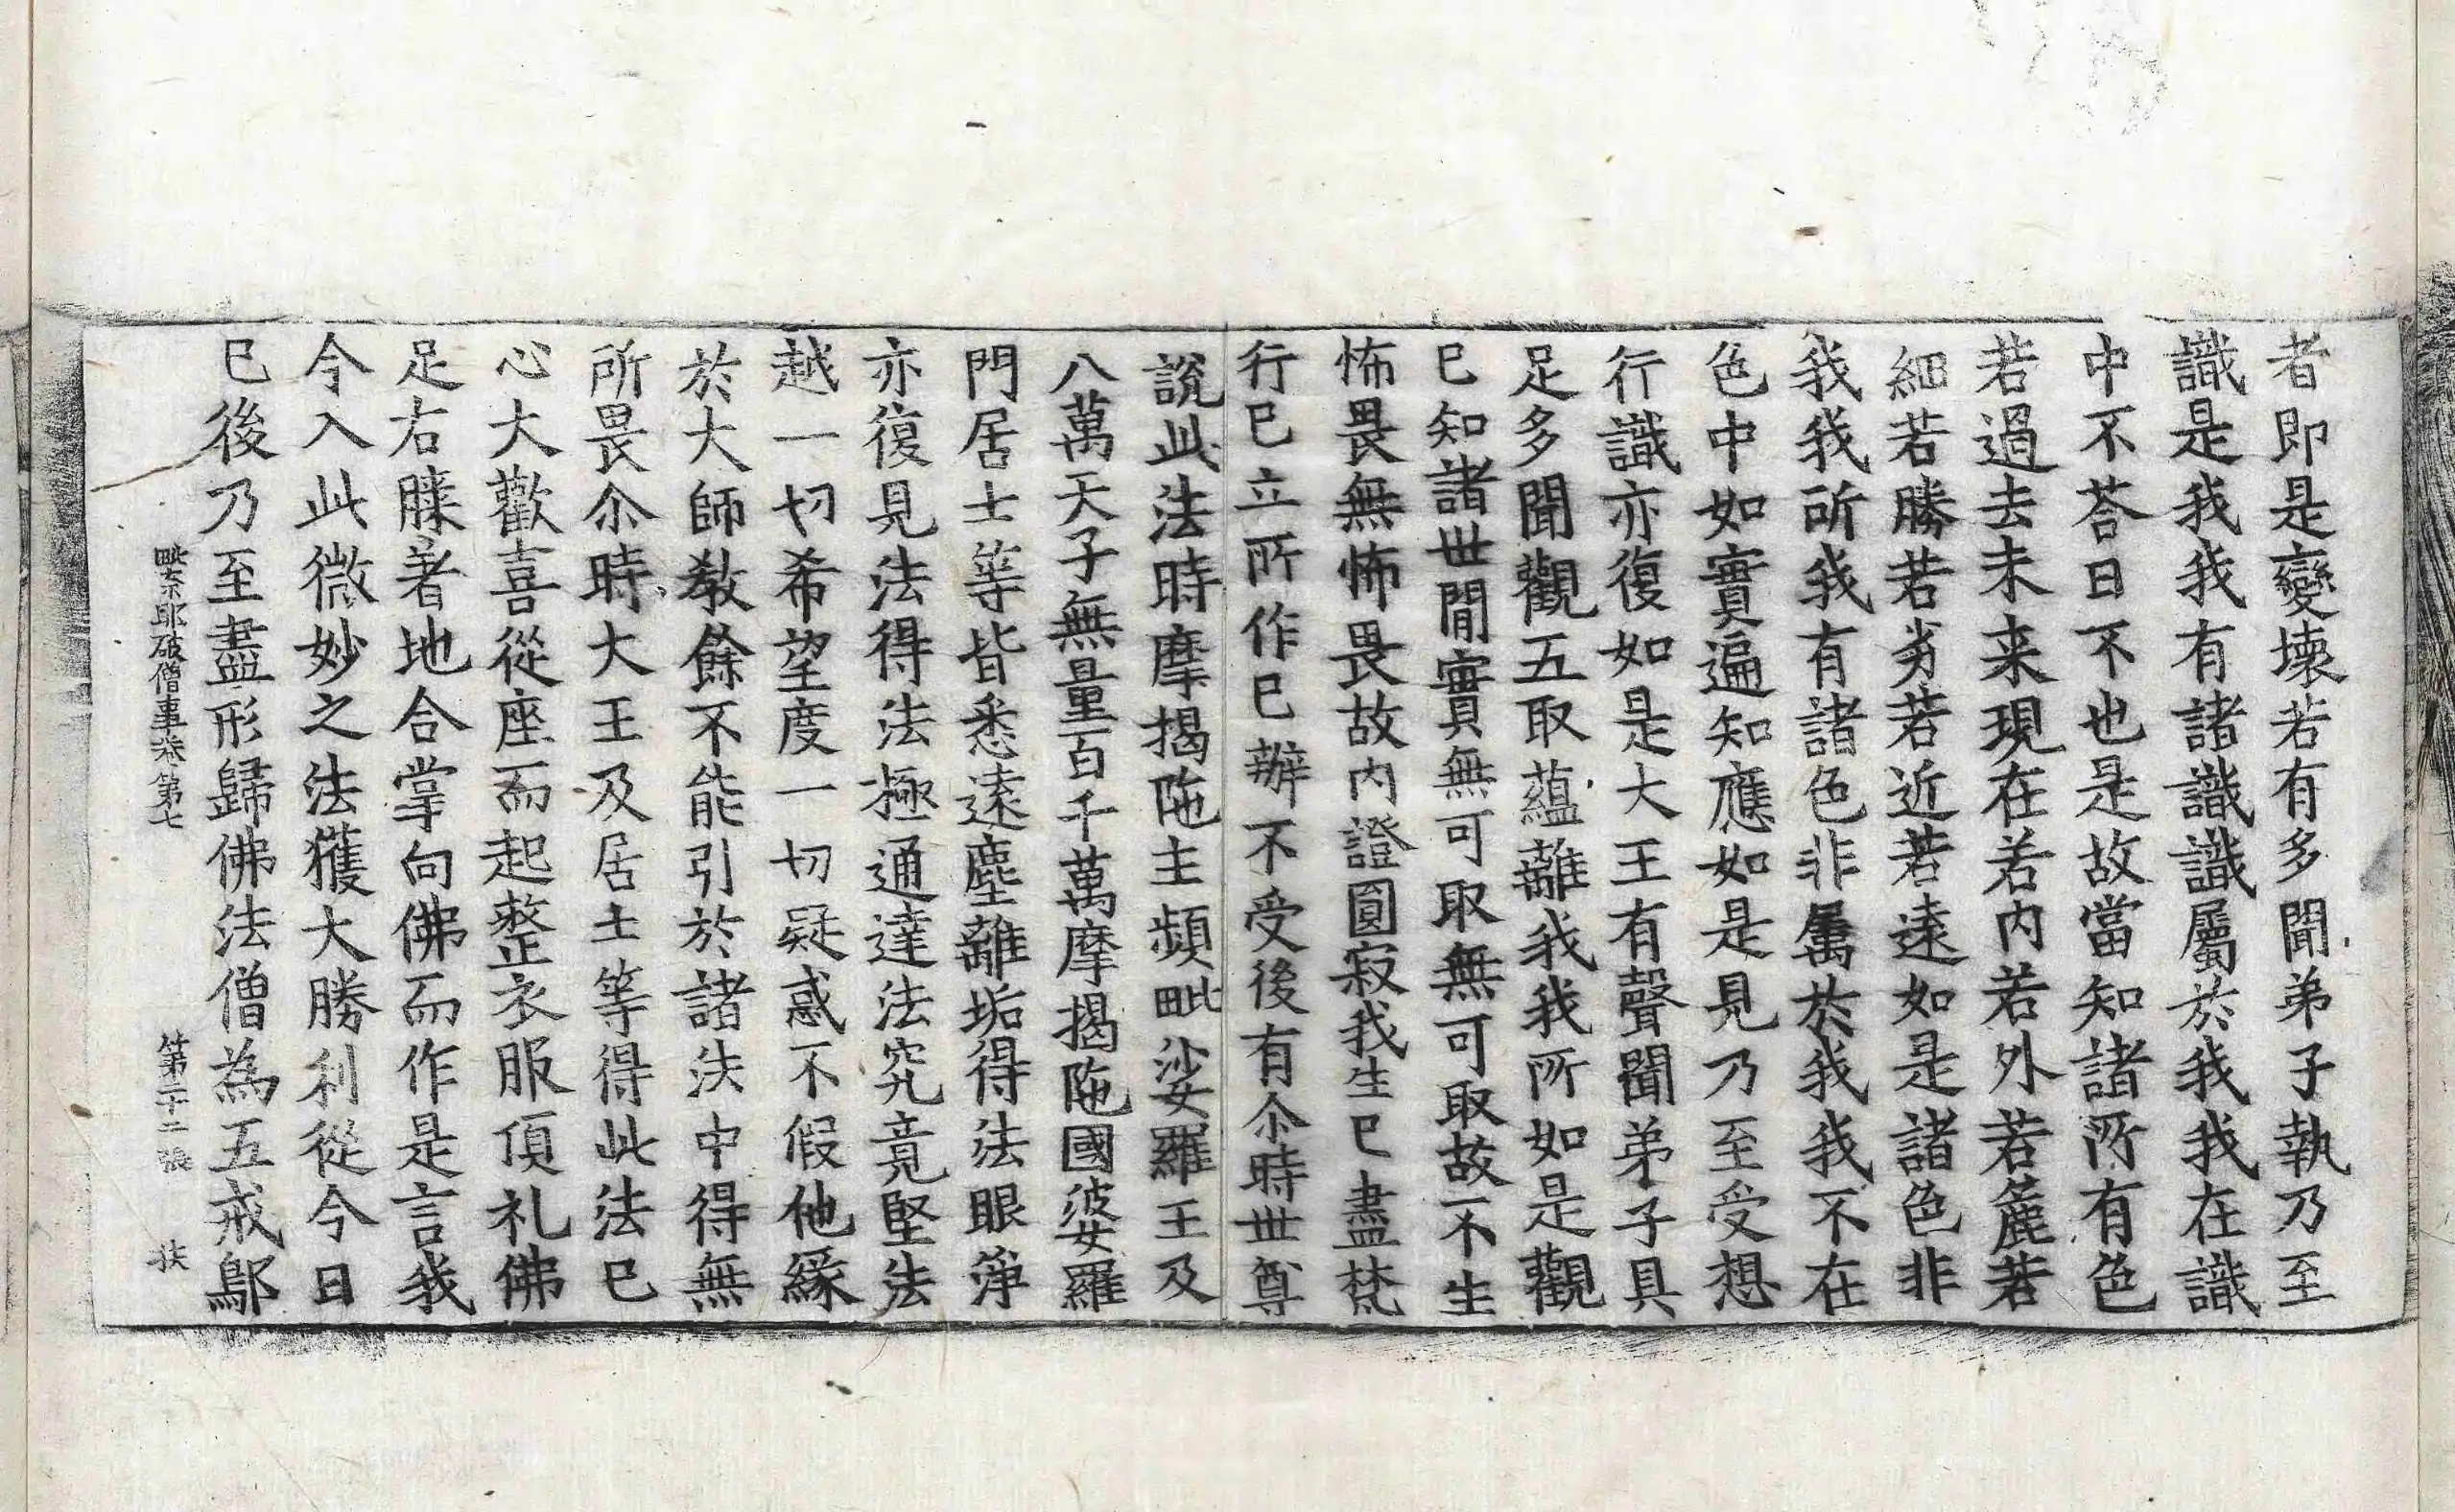 者即是變壞若有多聞弟子執乃至
識是我我有諸識識屬於我我在識
中不荅曰不也是故當知諸所有色
若過去未来現在若内若外若麁若
細若勝若劣若近若遠如是諸色非
我我所我有諸色非屬於我我不在
色中如實遍知應如是見乃至受想
行識亦復如是大王有聲聞弟子具
足多聞觀五取蘊離我我所如是觀
已知諸世間實無可取無可取故不生
怖畏無怖畏故内證圓寂我生已盡梵
行已立所作已辦不受後有尒時世尊
說此法時摩揭陁主頻毗娑羅王及
八萬天子無量百千萬摩揭陁國婆羅
門居士等皆悉遠塵離垢得法眼淨
亦復見法得法極通達法究竟堅法
越一切希望度一切疑惑不假他緣
於大師敎餘不能引於諸法中得無
所畏尒時大王及居士等得此法已
心大歡喜從座而起整衣服頂礼佛
足右膝著地合掌向佛而作是言我
今入此微妙之法獲大勝利從今日
已後乃至盡形歸佛法僧為五戒鄔
毗奈耶破僧事卷第七 第二十二張 扶